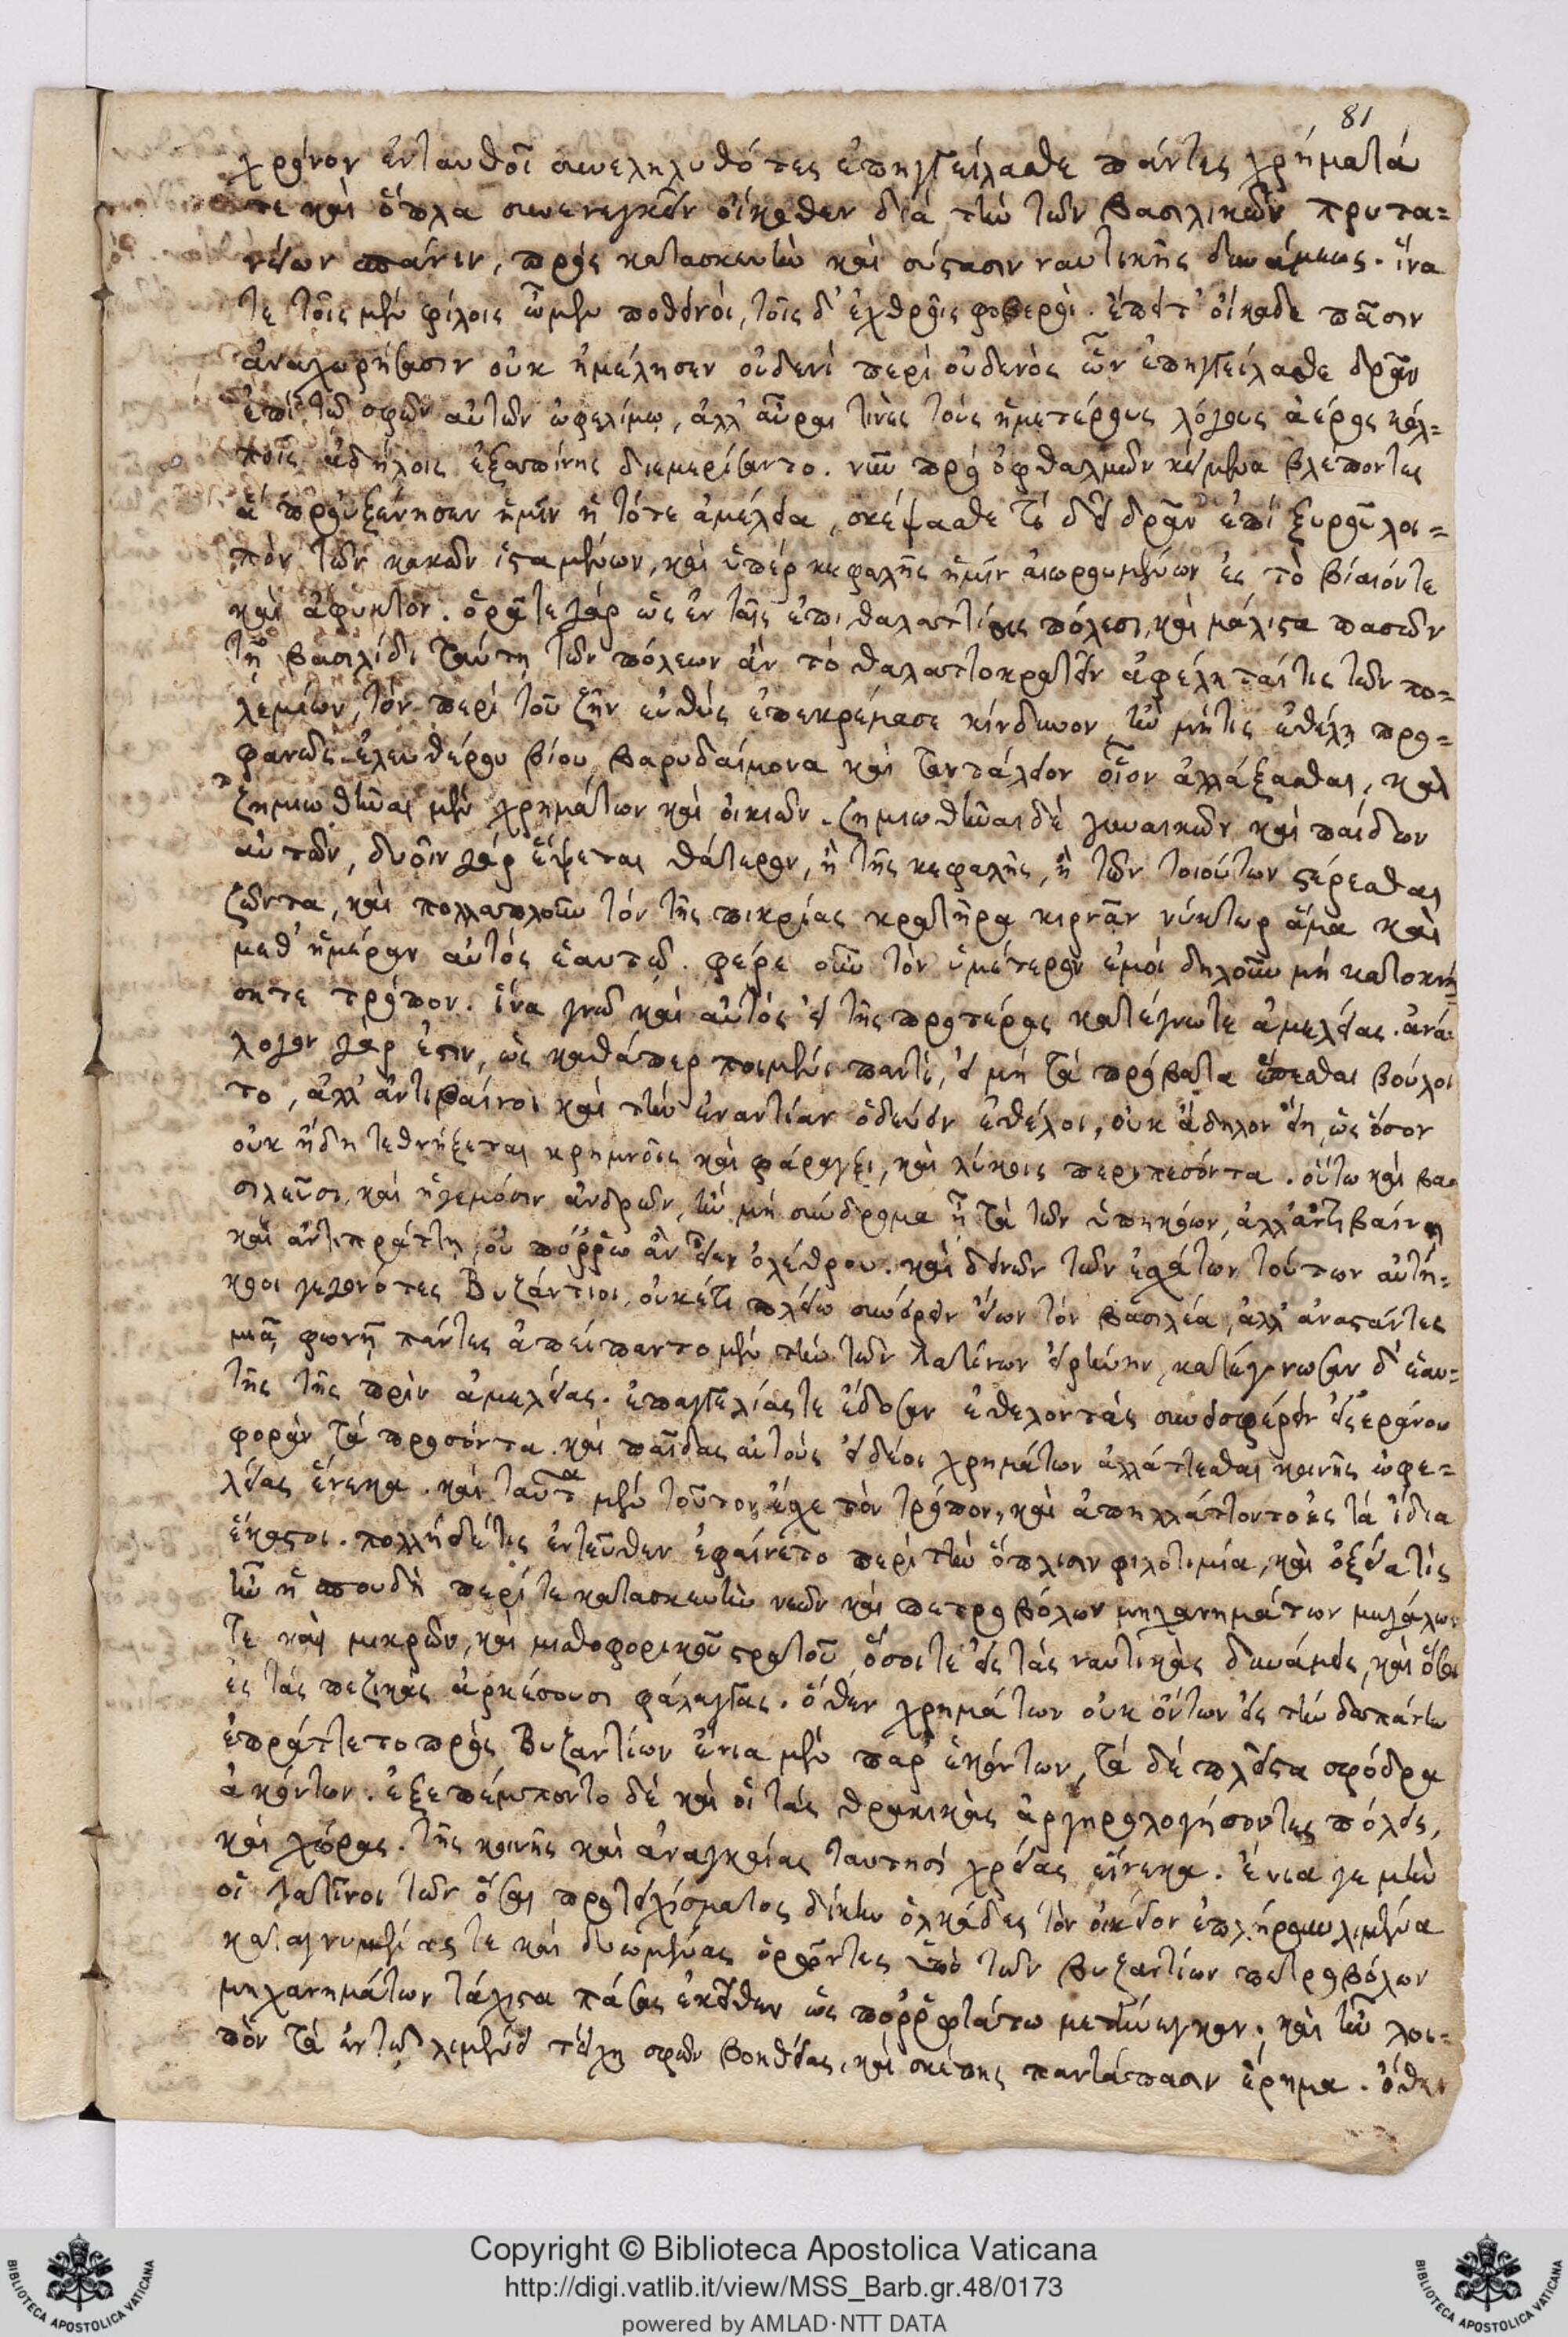 81
χρόνον ἐνταυθοῖ συνεληλυθότες ἐπηγγείλασθε πάντες χρήματά
τε καὶ ὅπλα συνενεγκεῖν οἴκοθεν διὰ τὴν τῶν βασιλικῶν πρυτα=
νείων σπάνιν, πρὸς κατασκευὴν καὶ σύστασιν ναυτικῆς δυνάμεως. ἵνα
τε τοῖς μὲν φίλοις ὦμεν ποθεινοὶ, τοῖς δ' ἐχθροῖς φοβεροὶ. ἐπεὶ τ' οἴκαδε πᾶσιν
ἀναχωρήσασιν οὐκ ἠμέλησεν οὐδενὶ περὶ οὐδενὸς ὧν ἐπηγγείλασθε δρᾶν
ἐπὶ τῷ σφῶν αὐτῶν ὠφελίμῳ, ἀλλ' αὖραι τινὲς τοὺς ἡμετέρους λόγους ἀέρος κόλ=
ποις ἀδήλοις ἐξαπίνης διεμερίσαντο. νῦν πρὸ ὀφθαλμῶν κείμενα βλέποντες
ἃ προὐξένησεν ἡμῖν ἡ τότε ἀμέλεια, σκέψασθε τί δεῖ δρᾶν ἐπὶ ξυροῦ λοι=
πὸν τῶν κακῶν ἱσταμένων, καὶ ὑπὲρ κεφαλῆς ἡμῖν αἰωρουμένων ἐς τὸ βίαιόν τε
καὶ ἄφυκτον. ὁρᾶτε γὰρ ὡς ἐν ταῖς ἐπιθαλαττίοις πόλεσι, καὶ μάλιστα πασῶν
τῇ βασιλίδι ταύτῃ τῶν πόλεων ἂν τὸ θαλαττοκρατεῖν ἀφέληταί τις τῶν πο=
λεμίων, τὸν περὶ τοῦ ζῆν εὐθὺς ἐπεκρέμασε κίνδυνον, ἢν μή τις ἐθέλῃ προ=
φανῶς ἐλευθέρου βίου βαρυδαίμονα καὶ ταντάλειον οἷον ἀλλάξασθαι, καὶ
ζημιωθῆναι μὲν χρημάτων καὶ οἰκιῶν. ζημιωθῆναι δὲ γυναικῶν καὶ παίδων
αὐτῶν, δυοῖν γὰρ ἕψεται θάτερον, ἢ τῆς κεφαλῆς, ἢ τῶν τοιούτων στέρεσθαι
ζῶντα, καὶ πολλαπλοῦν τὸν τῆς πικρίας κρατῆρα κιρνᾶν νύκτωρ ἅμα καὶ
μεθ' ἡμέραν αὐτὸς ἑαυτῷ. φέρε οὖν τὸν ὑμέτερον ἐμοὶ δηλοῦν μὴ κατοκνή=
σητε τρόπον. ἵνα γνῶ καὶ αὐτὸς εἰ τῆς προτέρας κατέγνωτε ἀμελείας. ἀνά=
λογον γάρ ἐστιν, ὡς καθάπερ ποιμένι παντὶ, εἰ μὴ τὰ πρόβατα ἕπεσθαι βούλοι
το, ἀλλ' ἀντιβαίνοι καὶ τὴν ἐναντίαν ὁδεύειν ἐθέλοι, οὐκ ἄδηλον εἴη, ὡς ὅσον
οὐκ ἤδη τεθνήξεται κρημνοῖς καὶ φάραγξι, καὶ λύκοις περιπεσόντα. οὕτω καὶ βα=
σιλεῦσι, καὶ ἡγεμόσιν ἀνδρῶν, ἢν μὴ σύνδρομα ᾖ τὰ τῶν ὑπηκόων, ἀλλ' ἀντιβαίνῃ
καὶ ἀντιπράττῃ, οὐ πόῤῥω ἂν εἶεν ὀλέθρου. καὶ δεινῶν τῶν ἐσχάτων τούτων αὐτή=
κοοι γεγονότες Βυζάντιοι, οὐκέτι πλείω συνείρειν εἴων τὸν βασιλέα, ἀλλ' ἀναστάντες
μιᾷ φωνῇ πάντες ἀπείπαντο μὲν τὴν τῶν Λατίνων εἰρήνην, κατέγνωσαν δ' ἑαυ=
τῆς τῆς πρὶν ἀμελείας. ἐπαγγελίας τε ἔδοσαν ἐθελοντὰς συνεισφέρειν εἰς ἐράνου
φορὰν τὰ προσόντα. καὶ παῖδας αὐτοὺς εἰ δέοι χρημάτων ἀλλάττεσθαι κοινῆς ὠφε=
λείας ἕνεκα. καὶ ταῦτα μὲν τοῦτον εἶχε τὸν τρόπον, καὶ ἀπηλλάττοντο ἐς τὰ ἴδια
ἕκαστοι. πολλὴ δέ τις ἐντεῦθεν ἐφαίνετο περὶ τὴν ὅπλισιν φιλοτιμία, καὶ ὀξεῖά τις
ἦν ἡ σπουδὴ περί τε κατασκευὴν νεῶν καὶ πετροβόλων μηχανημάτων μεγάλων
τε καὶ μικρῶν, καὶ μισθοφορικοῦ στρατοῦ, ὅσοι τε εἰς τὰς ναυτικὰς δυνάμεις, καὶ ὅσοι
ἐς τὰς πεζικὰς ἀρκέσουσι φάλαγγας. ὅθεν χρημάτων οὐκ ὄντων εἰς τὴν δαπάνην
ἐπράττετο πρὸς Βυζαντίων ἔνια μὲν παρ' ἑκόντων, τὰ δὲ πλεῖστα σφόδρα
ἀκόντων. ἐξεπέμποντο δὲ καὶ οἱ τὰς θρακικὰς ἀργυρολογήσοντες πόλεις,
καὶ χώρας. τῆς κοινῆς καὶ ἀναγκαίας ταυτησὶ χρείας εἵνεκα. ἔνια γε μὴν
οἱ λατῖνοι τῶν ὅσαι προτειχίσματος δίκην ὁλκάδες τὸν οἰκεῖον ἐπλήρουν λιμένα
καταγνυμένας τε καὶ δυομένας ὁρῶντες ὑπὸ τῶν Βυζαντίων πετροβόλων
μηχανημάτων τάχιστα πάσας ἐκεῖθεν ὡς ποῤῥωτάτω μετήνεγκαν, καὶ ἦν λοι=
πὸν τὰ ἐν τῷ λιμένι τείχη σφῶν βοηθείας, καὶ σκέπης παντάπασιν ἔρημα. ὅθεν
Copyright © Biblioteca Apostolica Vaticana
http://digi.vatlib.it/view/MSS_Barb.gr.48/0173
powered by AMLAD·NTT DATA
BIBLIOTECA APOSTOLICA VATICANA
BIBLIOTECA APOSTOLICA VATICANA